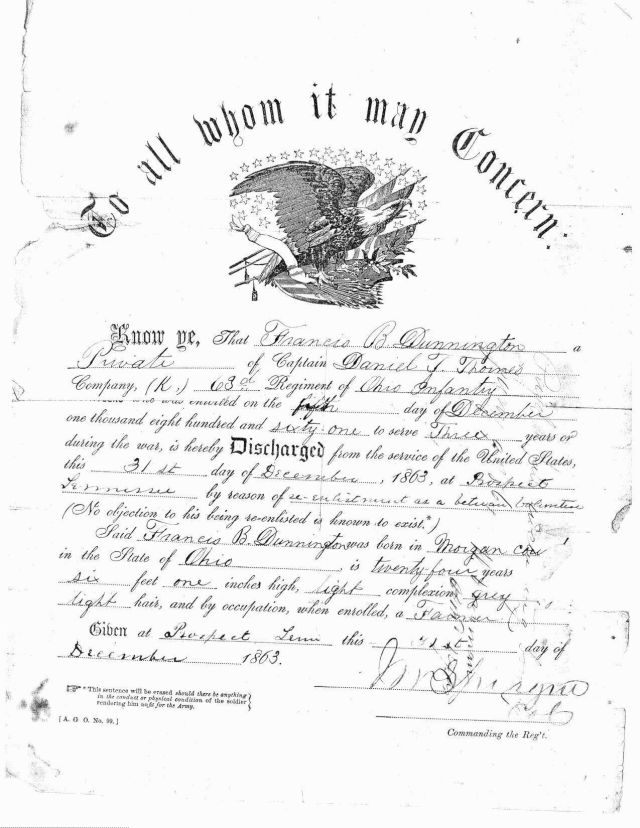 To all whom it may Concern:
Know ye, That Francis B Dunnington a
Private of Captain Daniel T. Thornes
Company, (K.) 63rd Regiment of Ohio Infantry
who was enrolled on the day of December
one thousand eight hundred and sixty one to serve Three years or
during the war, is hereby Discharged from the service of the United States,
this 31st day of December, 1863, at Prospect
Tennessee by reason of re-enlistment as a veteran volunteer
(No objection to his being re-enlisted is known to exist.*)
Said Francis B. Dunnington was born in Morgan
in the State of Ohio is twenty four years
six feet one inches high, light complexion, grey
light hair, and by occupation, when enrolled, a Farmer
Given at Prospect Tenn this 31st day of
December 1863.
* This sentence will be erased should there be anything
in the conduct or physical condition of the soldier
rendering him unfit for the Army.
[A. G. O. No. 99.]
Col
Commanding the Reg't.